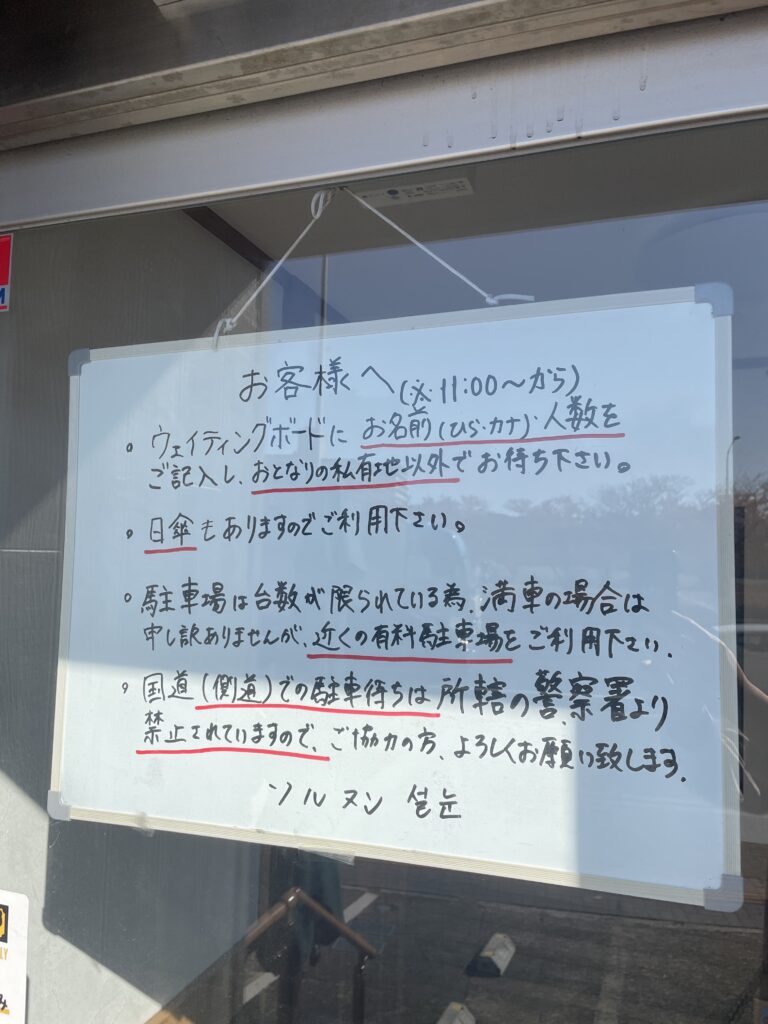 お客様へ(※11:00〜から)
。ウェイティングボードに お名前(ひら・カナ)・人数を
ご記入し、おとなりの私有地以外でお待ち下さい。
。日傘もありますのでご利用下さい。
。駐車場は台数が限られている為、満車の場合は
申し訳ありませんが、近くの有料駐車場をご利用下さい.
。国道(側道)での駐車待ちは所轄の警察署より
禁止されていますので、ご協力の方、よろしくお願い致します.
ソルヌン 설눈